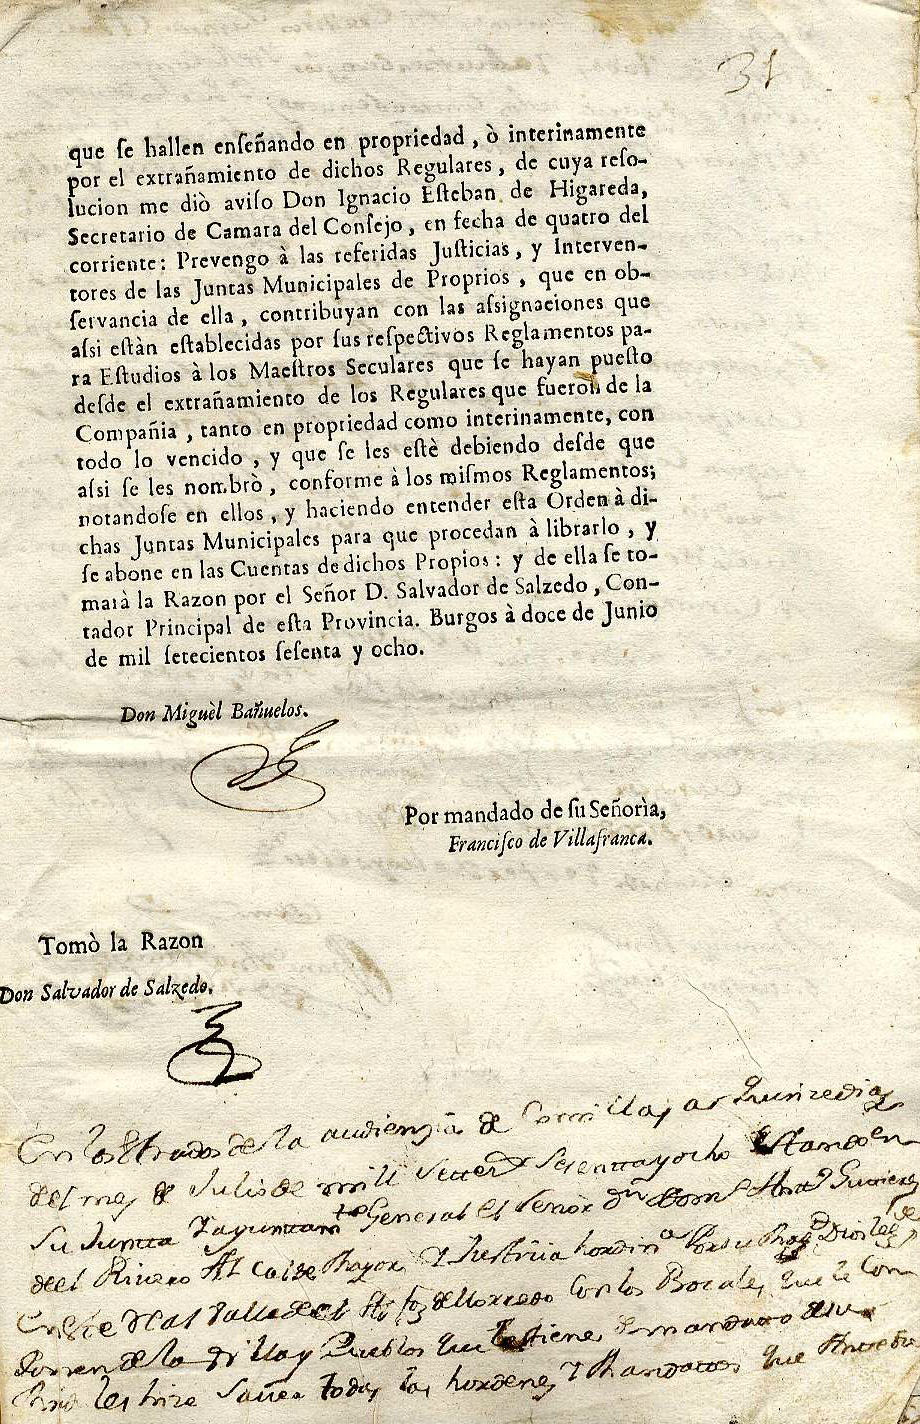 31
que ſe hallen enſeñando en propriedad, ò interinamente
por el extrañamiento de dichos Regulares, de cuya reſo-
lucion me diò aviſo Don Ignacio Eſteban de Higareda,
Secretario de Camara del Conſejo, en fecha de quatro del
corriente: Prevengo à las referidas Juſticias, y Interven-
tores de las Juntas Municipales de Proprios, que en ob-
ſervancia de ella, contribuyan con las aſsignaciones que
aſsi eſtàn eſtablecidas por ſus reſpectivos Reglamentos pa-
ra Eſtudios à los Maeſtros Seculares que ſe hayan pueſto
deſde el extrañamiento de los Regulares que fueron de la
Compañia, tanto en propriedad como interinamente, con
todo lo vencido, y que ſe les eſtè debiendo deſde que
aſsi ſe les nombrò, conforme à los miſmos Reglamentos;
notandoſe en ellos, y haciendo entender eſta Orden à di-
chas Juntas Municipales para que procedan à librarlo, y
ſe abone en las Cuentas de dichos Propios: y de ella ſe to-
marà la Razon por el Señor D. Salvador de Salzedo, Con-
tador Principal de eſta Provincia. Burgos à doce de Junio
de mil ſetecientos ſeſenta y ocho.
Don Miguèl Bañuelos.
Por mandado de ſu Señorìa,
Franciſco de Villafranca.
Tomò la Razon
Don Salvador de Salzedo.
En los Estrados de la audienzia de Corrillos a quinze dias
del mes de Julio de mill setezs sesentta y ocho Estando en
su Juntta y ayuntamto General el señor dn
del Rivero Alcalde Mayor y Justizia hordina por su Magd Dios le ge
en este Real Valle de con los Bocales que le Com
ponen de la Villa y Pueblos que tiene de mandato de su
hize saver todas las hordenes y Mandatos que